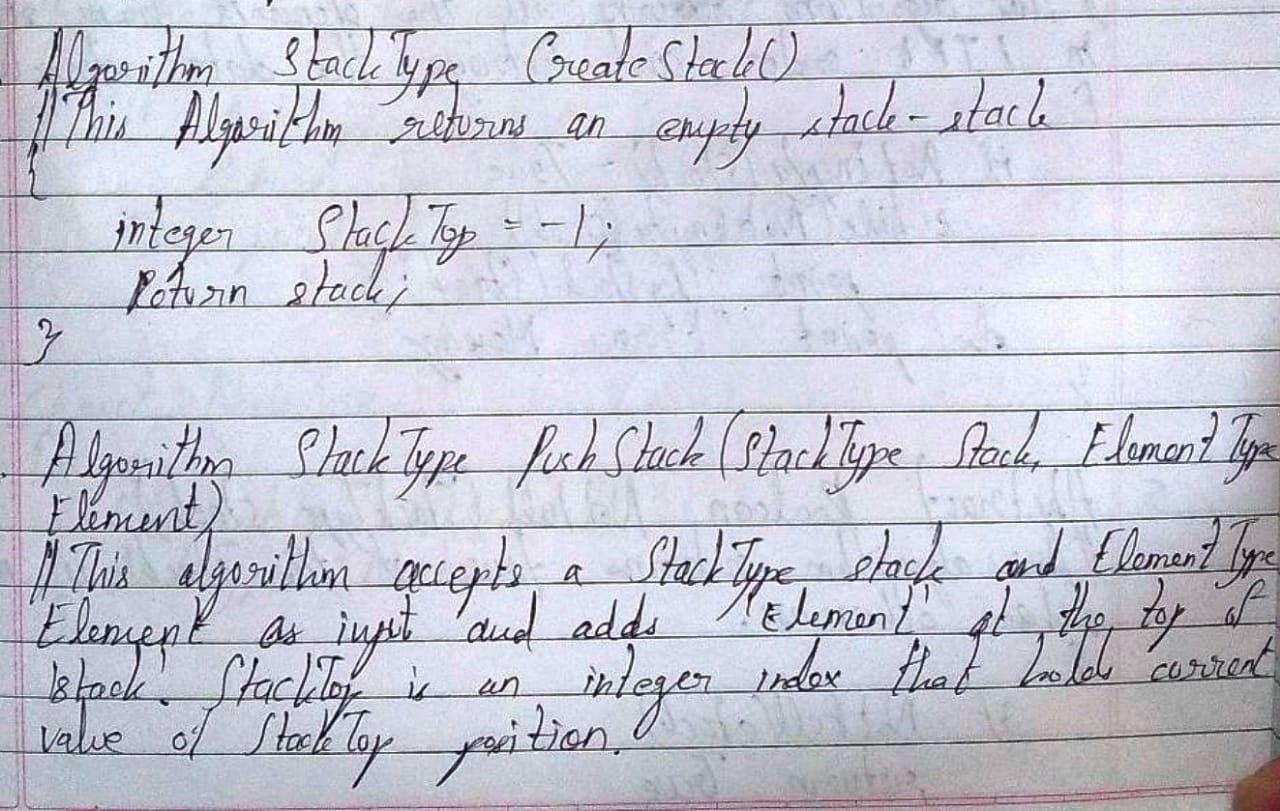 Algorithm StackType CreateStack()
// This Algorithm returns an empty stack - stack
{
integer StackTop = -1;
Return stack;
}
Algorithm StackType PushStack (StackType Stack, ElementType
Element)
// This algorithm accepts a StackType stack and ElementType
Element as input and adds 'Element' at the top of
'stack'. StackTop is an integer index that holds current
value of StackTop position.